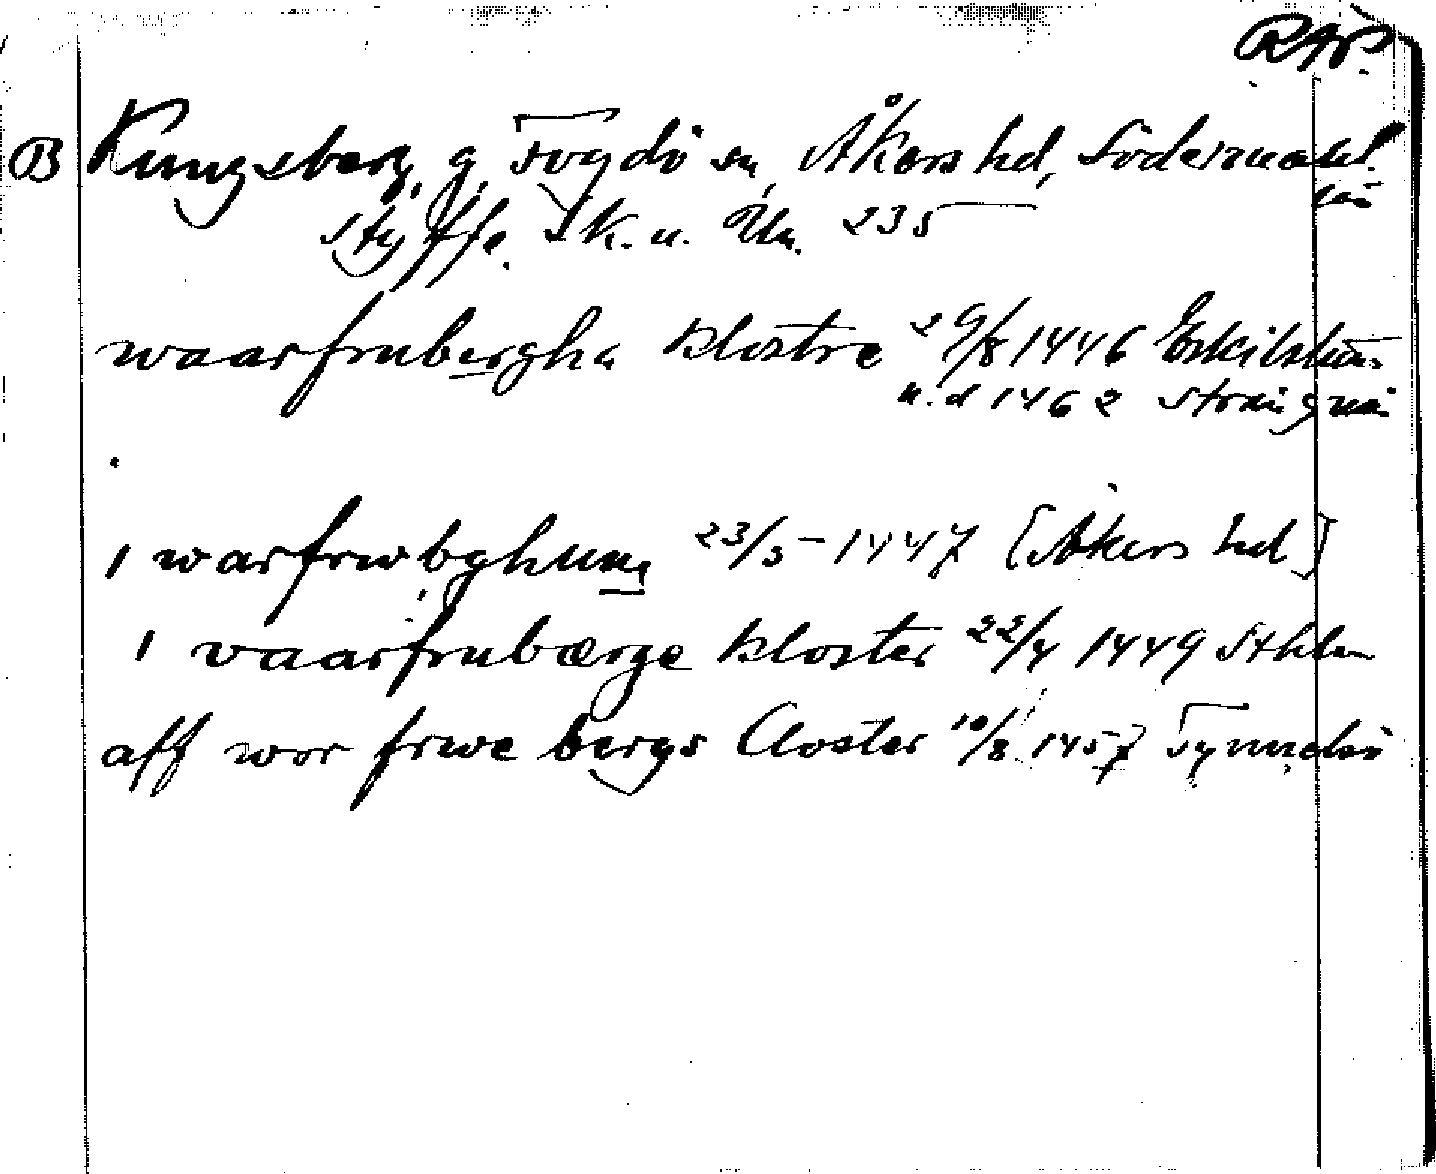 RAP.
B Kungsberg, g, Fogdö sn, Åkers hd, Södermanl.
län
Styffe. Sk. u. Un. 235
waarfrubergha klostre 29/8 1446 Eskilstuna
u. d 1462 Strängnäs
I warfrwbghum 23/5 - 1447 [Åkers hd]
I vaarfrubærge kloster 22/4 1449 Sthlm
aff wor frwe bergs Closter 10/8 1457 Tynnelsö